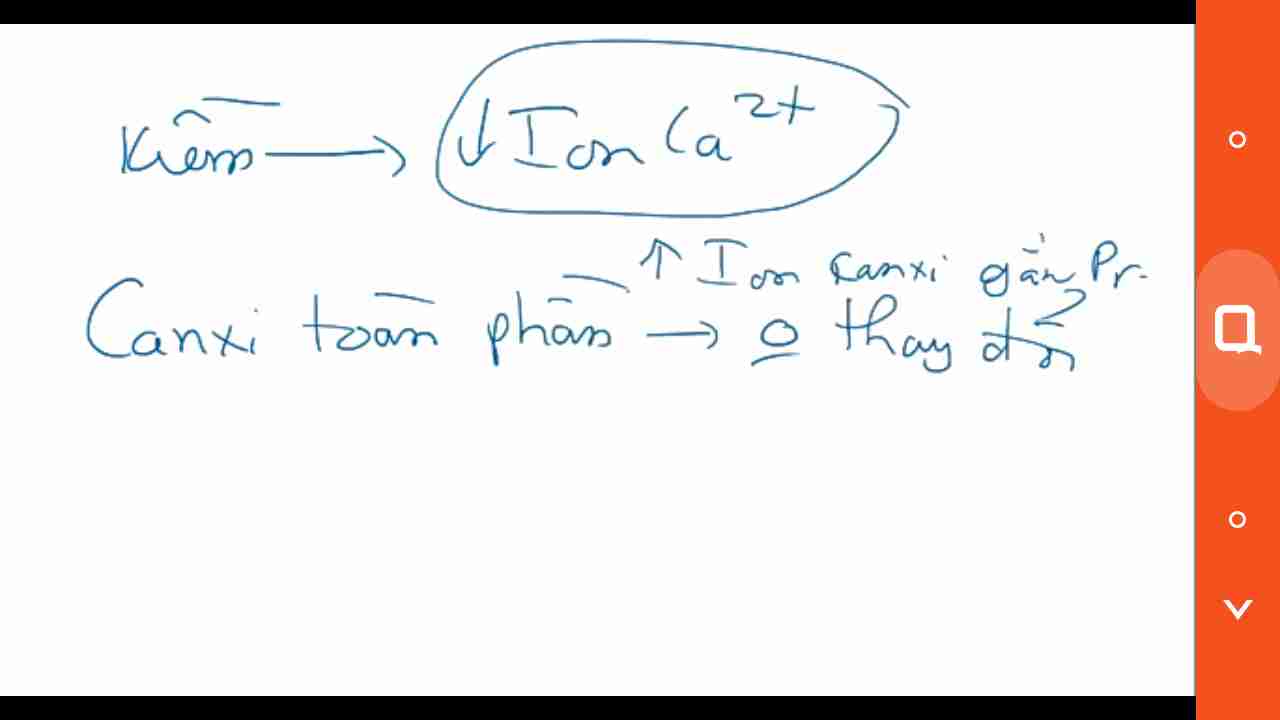 Kiềm → ↓ Ion Ca²⁺
↑ Ion canxi gắn Pr.
Canxi toàn phần → 0 thay đổi